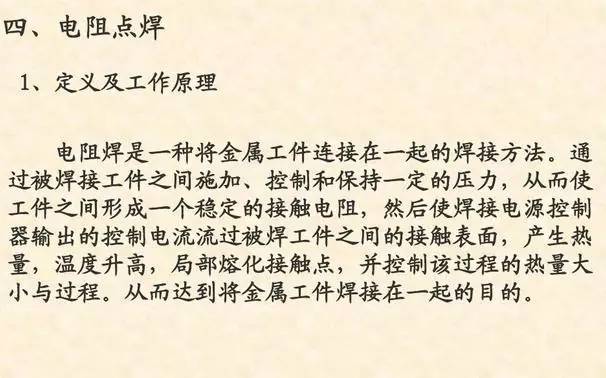 四、电阻点焊
1、定义及工作原理
电阻焊是一种将金属工件连接在一起的焊接方法。通
过被焊接工件之间施加、控制和保持一定的压力，从而使
工件之间形成一个稳定的接触电阻，然后使焊接电源控制
器输出的控制电流流过被焊工件之间的接触表面，产生热
量，温度升高，局部熔化接触点，并控制该过程的热量大
小与过程。从而达到将金属工件焊接在一起的目的。